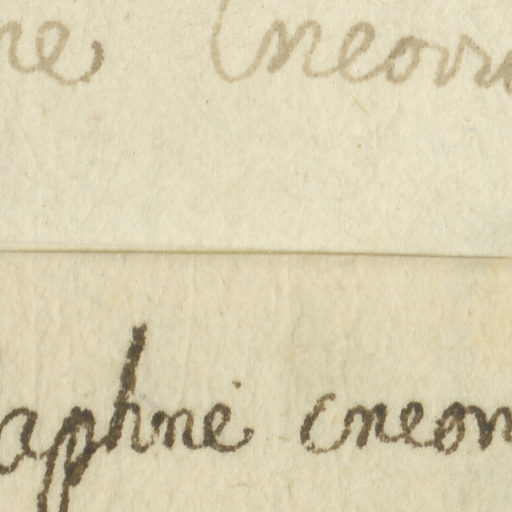 ne Cneoru
aphne cneoru